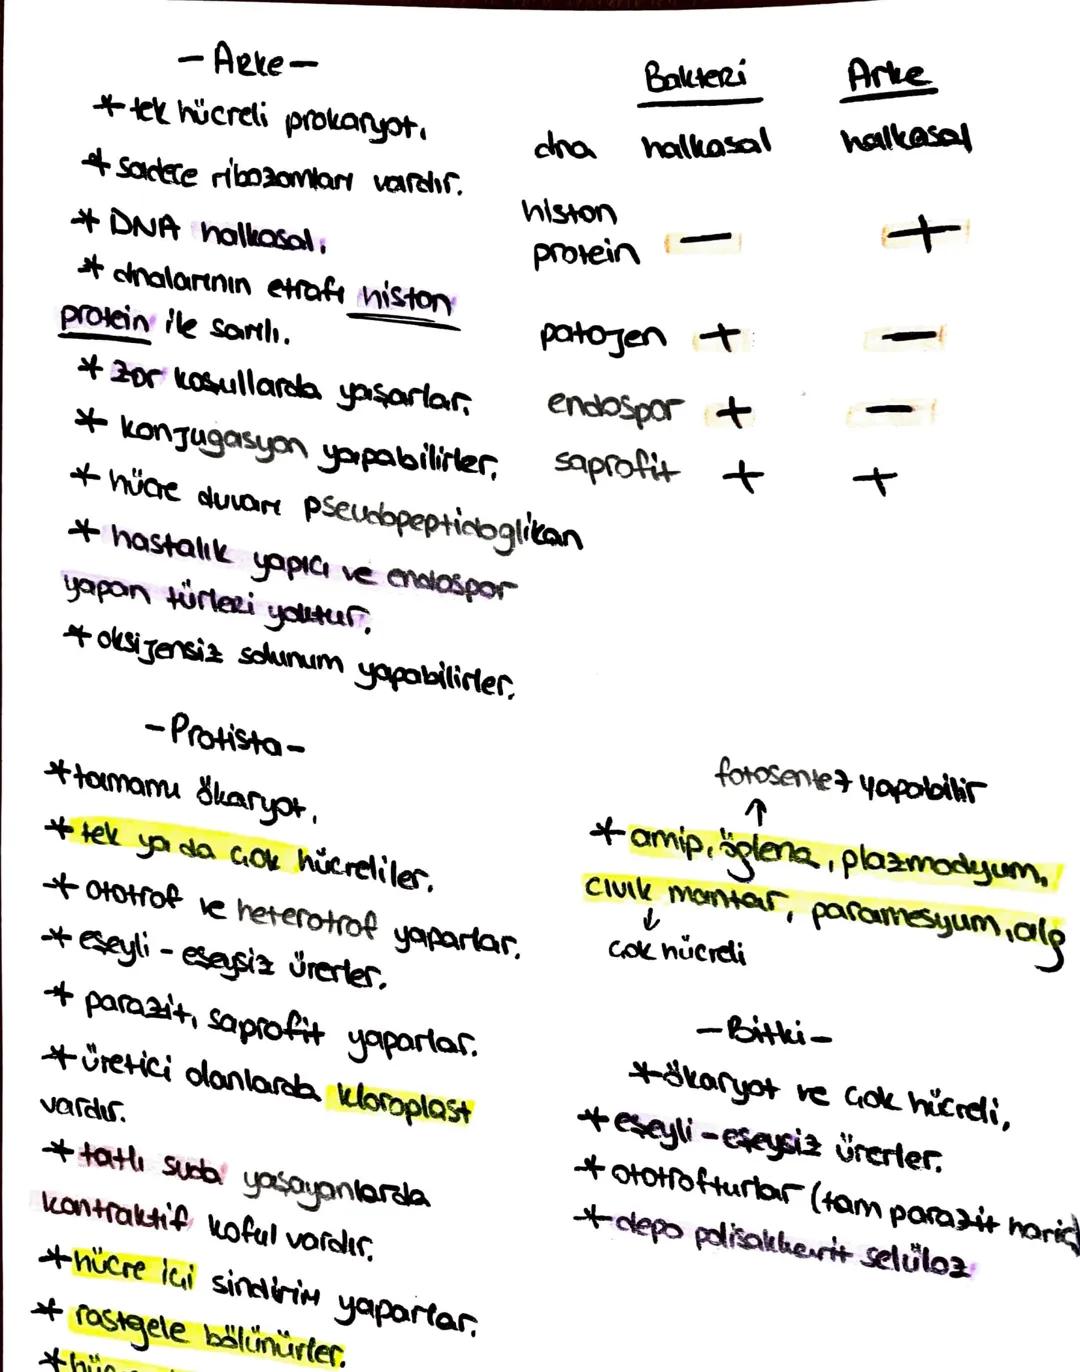 - Arke -
* tek hücreli prokaryot.
* sadece ribozomları vardır.
* DNA halkasal.
* dnalarının etrafı histon
protein ile sarılı.
* zor koşullarda yaşarlar.
* konjugasyon yapabilirler.
* hücre duvarı pseudopeptidoglikan
* hastalık yapıcı ve endospor
yapan türleri yoktur.
* oksijensiz solunum yapabilirler.
Bakteri Arke
dna halkasal halkasal
histon
protein - +
patojen + -
endospor + -
saprofit + +
- Protista -
* tamamı ökaryot.
* tek ya da çok hücreliler.
* ototrof ve heterotrof yaparlar.
* eşeyli - eşeysiz ürerler.
* parazit, saprofit yaparlar.
* üretici olanlarda kloroplast
vardır.
* tatlı suda yaşayanlarda
kontraktif koful vardır.
* hücre içi sindirim yaparlar.
* rastgele bölünürler.
fotosentez yapabilir
↑
* amip, öglena, plazmodyum,
cıvık mantar, paramesyum, alg
↓
çok hücreli
- Bitki -
* ökaryot ve çok hücreli.
* eşeyli - eşeysiz ürerler.
* ototrofturlar (tam parazit hariç)
* depo polisakkarit selüloz